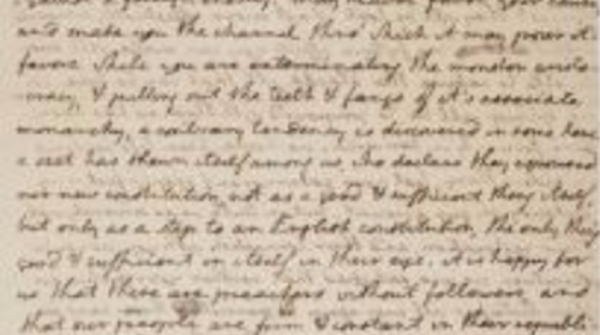 against a foreign enemy. may heaven favor your cause
and make you the channel thro' which it may pour it's
favors. while you are exterminating the monster aristo-
cracy, & pulling out the teeth & fangs of it's associate
monarchy, a contrary tendency is discovered in some here
a sect has shewn itself among us, who declare they espoused
our new constitution, not as a good & sufficient thing itself
but only as a step to an English constitution, the only thing
good & sufficient in itself in their eye. it is happy for
us that these are preachers without followers, and
that our people are firm & constant in their republic